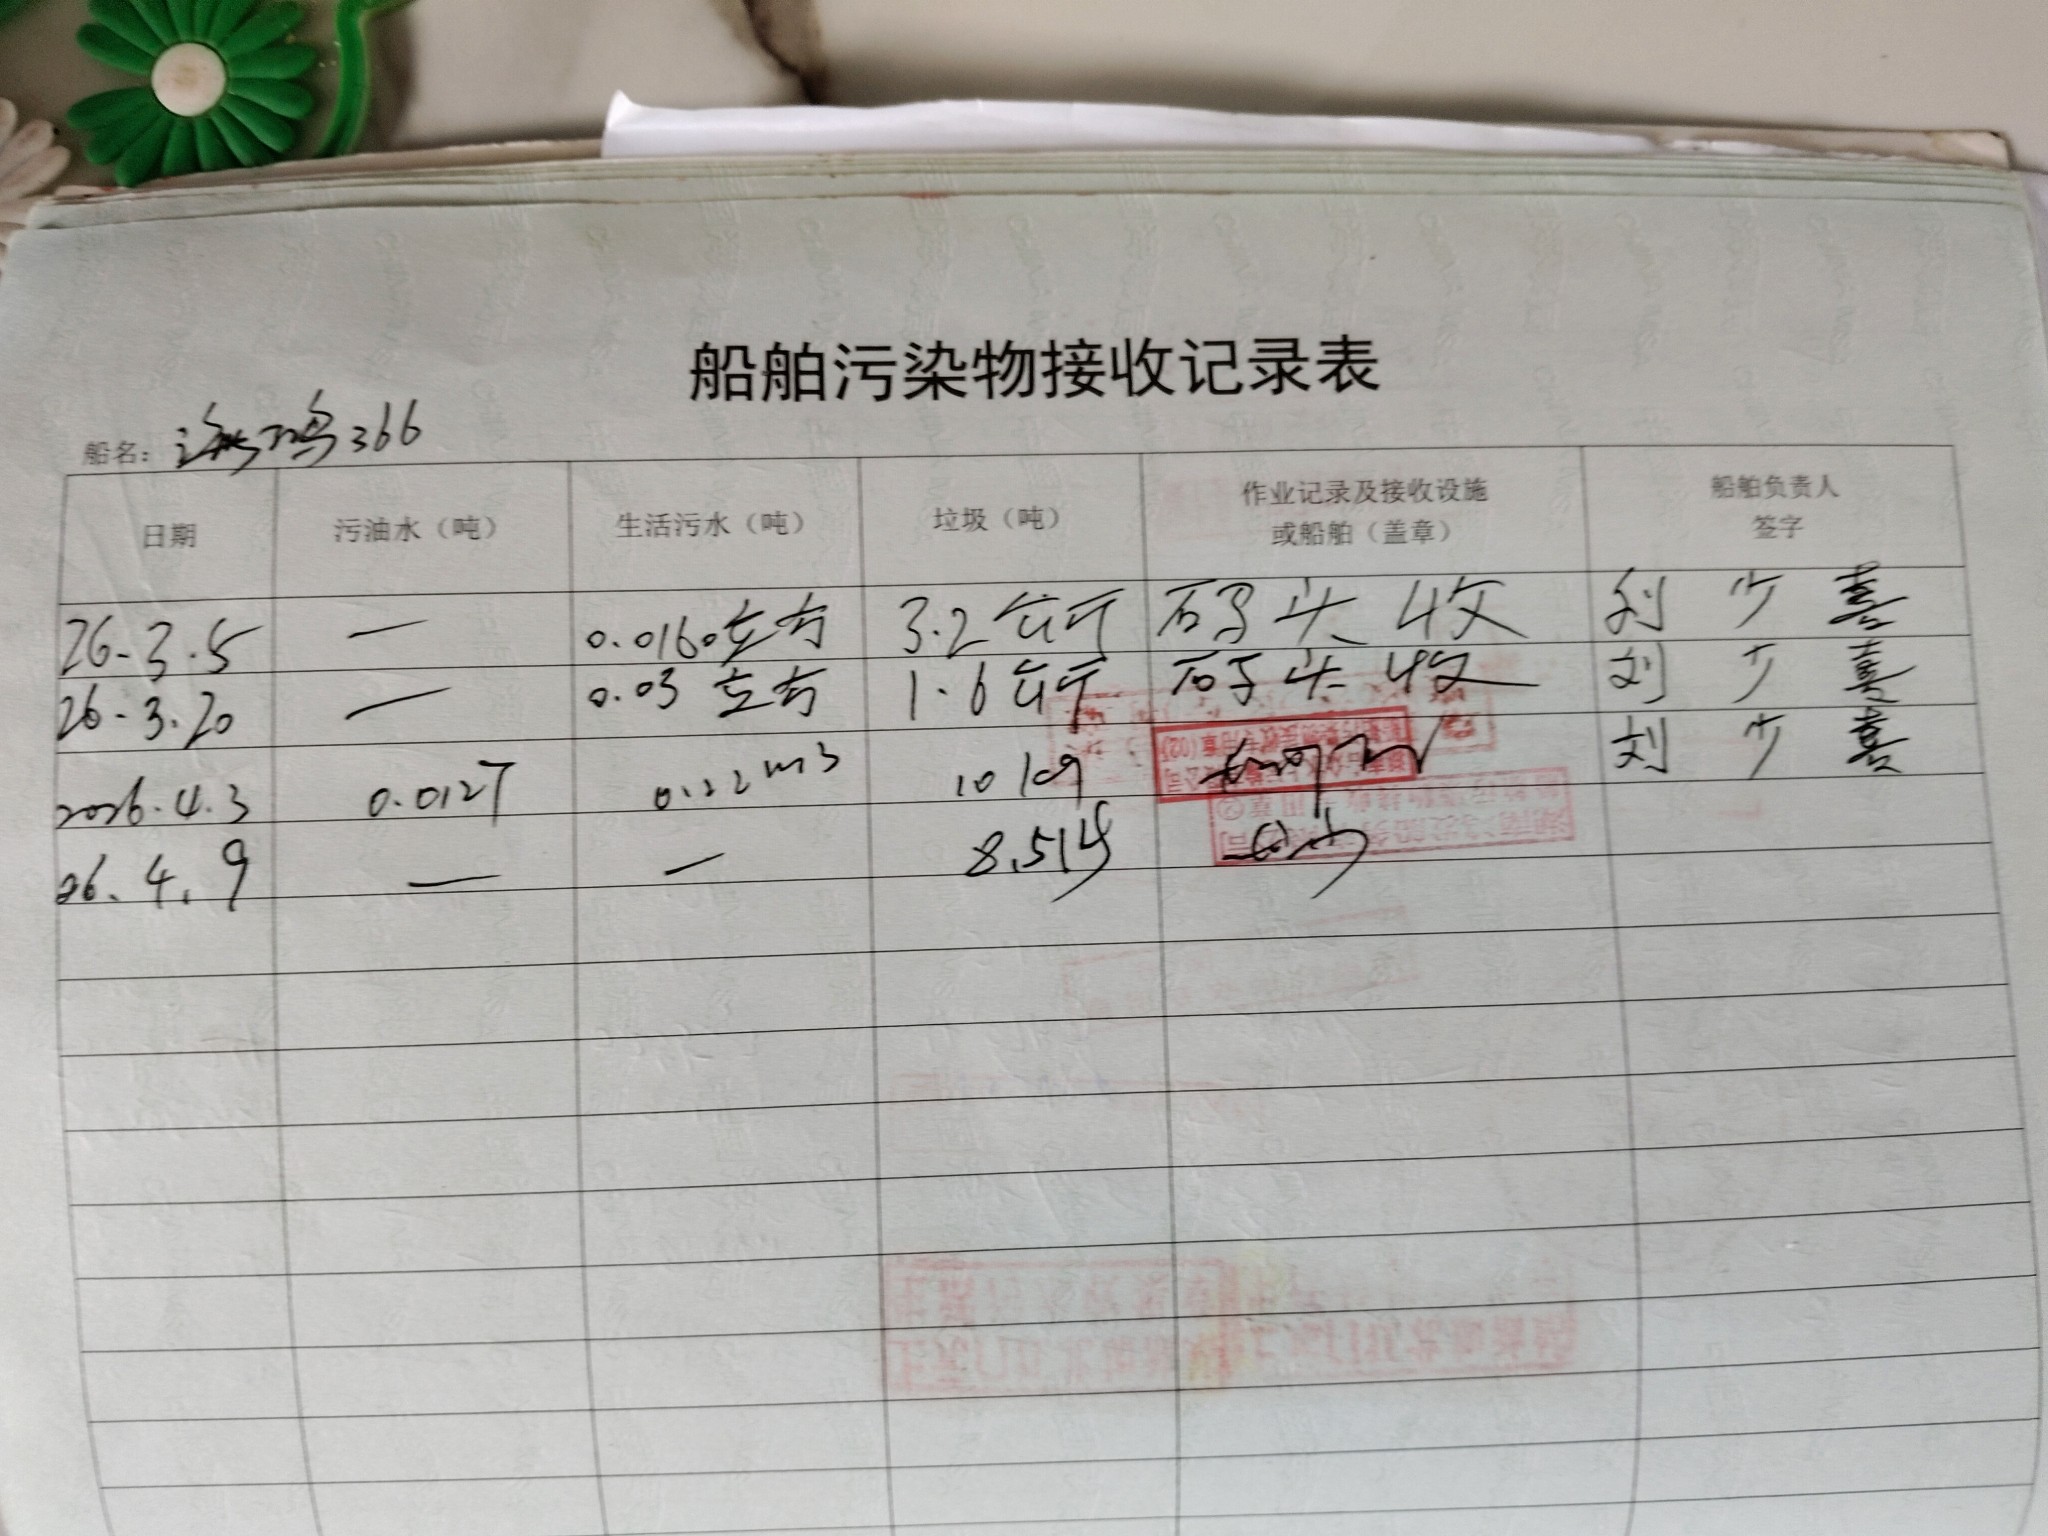 船舶污染物接收记录表
船名: 海鸣366
日期 污油水（吨） 生活污水（吨） 垃圾（吨） 作业记录及接收设施或船舶（盖章） 船舶负责人签字
26-3.5 — 0.0160立方 3.2公斤 码头收 刘少喜
26-3.20 — 0.03立方 1.6公斤 码头收 刘少喜
2026.4.3 0.012T 0.22m3 10kg 刘少喜
26.4.9 — —